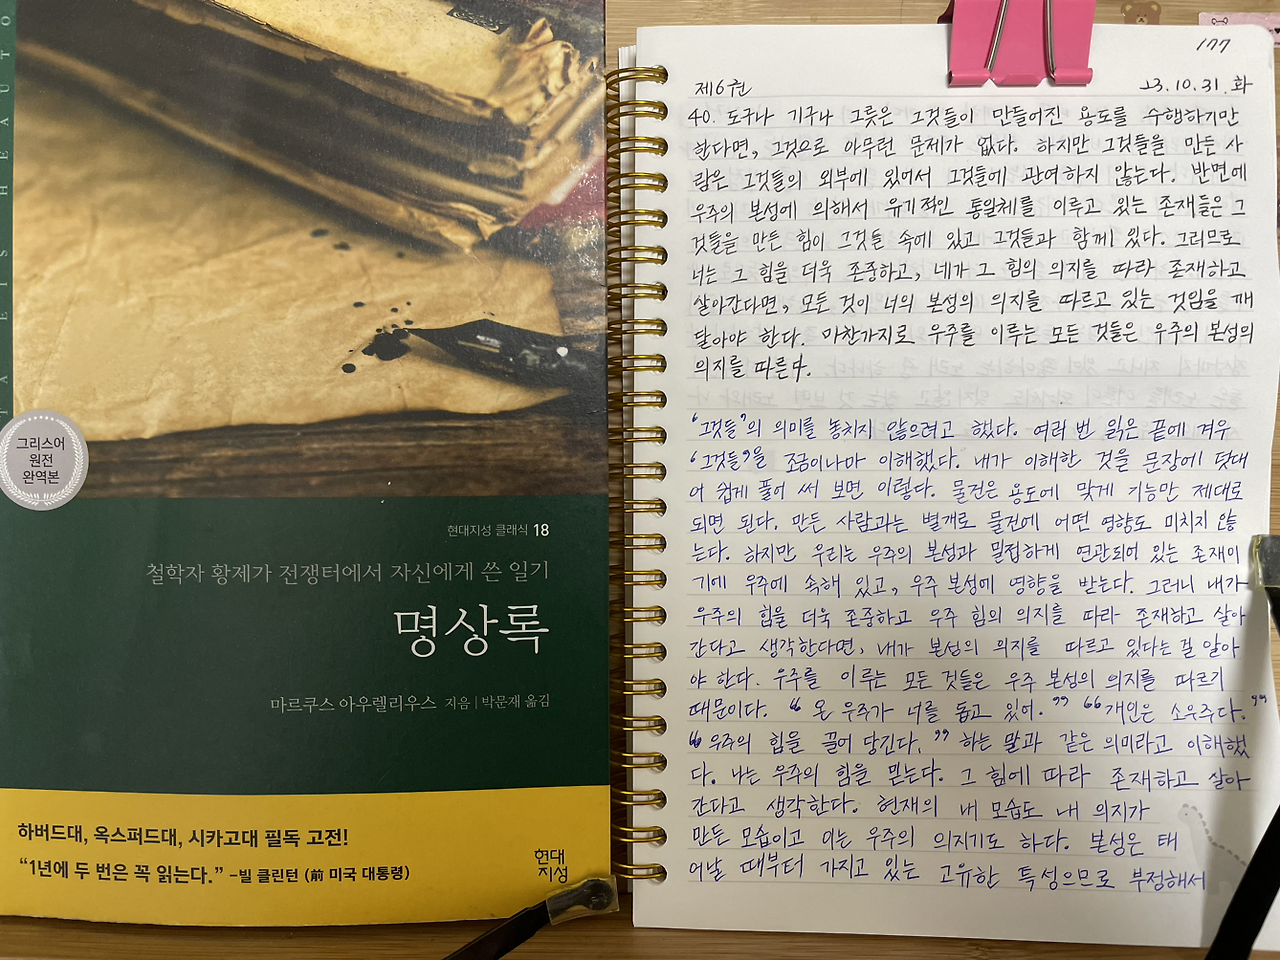 TAEISHEAUTO
그리스어
원전
완역본
현대지성 클래식 18
철학자 황제가 전쟁터에서 자신에게 쓴 일기
명상록
마르쿠스 아우렐리우스 지음 | 박문재 옮김
하버드대, 옥스퍼드대, 시카고대 필독 고전!
“1년에 두 번은 꼭 읽는다.” -빌 클린턴 (前 미국 대통령)
현대
지성
177
제6권 23.10.31.화
40. 도구나 기구나 그릇은 그것들이 만들어진 용도를 수행하기만
한다면, 그것으로 아무런 문제가 없다. 하지만 그것들을 만든 사
람은 그것들의 외부에 있어서 그것들에 관여하지 않는다. 반면에
우주의 본성에 의해서 유기적인 통일체를 이루고 있는 존재들은 그
것들을 만든 힘이 그것들 속에 있고 그것들과 함께 있다. 그러므로
너는 그 힘을 더욱 존중하고, 네가 그 힘의 의지를 따라 존재하고
살아간다면, 모든 것이 너의 본성의 의지를 따르고 있는 것임을 깨
달아야 한다. 마찬가지로 우주를 이루는 모든 것들은 우주의 본성의
의지를 따른다.
“그것들”의 의미를 놓치지 않으려고 했다. 여러 번 읽은 끝에 겨우
“그것들”을 조금이나마 이해했다. 내가 이해한 것을 문장에 덧대
어 쉽게 풀어 써 보면 이렇다. 물건은 용도에 맞게 기능만 제대로
되면 된다. 만든 사람과는 별개로 물건에 어떤 영향도 미치지 않
는다. 하지만 우리는 우주의 본성과 밀접하게 연관되어 있는 존재이
기에 우주에 속해 있고, 우주 본성에 영향을 받는다. 그러니 내가
우주의 힘을 더욱 존중하고 우주 힘의 의지를 따라 존재하고 살아
간다고 생각한다면, 내가 본성의 의지를 따르고 있다는 걸 알아
야 한다. 우주를 이루는 모든 것들은 우주 본성의 의지를 따르기
때문이다. “온 우주가 너를 돕고 있어.” “개인은 소우주다.”
“우주의 힘을 끌어 당긴다.” 하는 말과 같은 의미라고 이해했
다. 나는 우주의 힘을 믿는다. 그 힘에 따라 존재하고 살아
간다고 생각한다. 현재의 내 모습도 내 의지가
만든 모습이고 이는 우주의 의지기도 하다. 본성은 태
어날 때부터 가지고 있는 고유한 특성으므로 부정해서